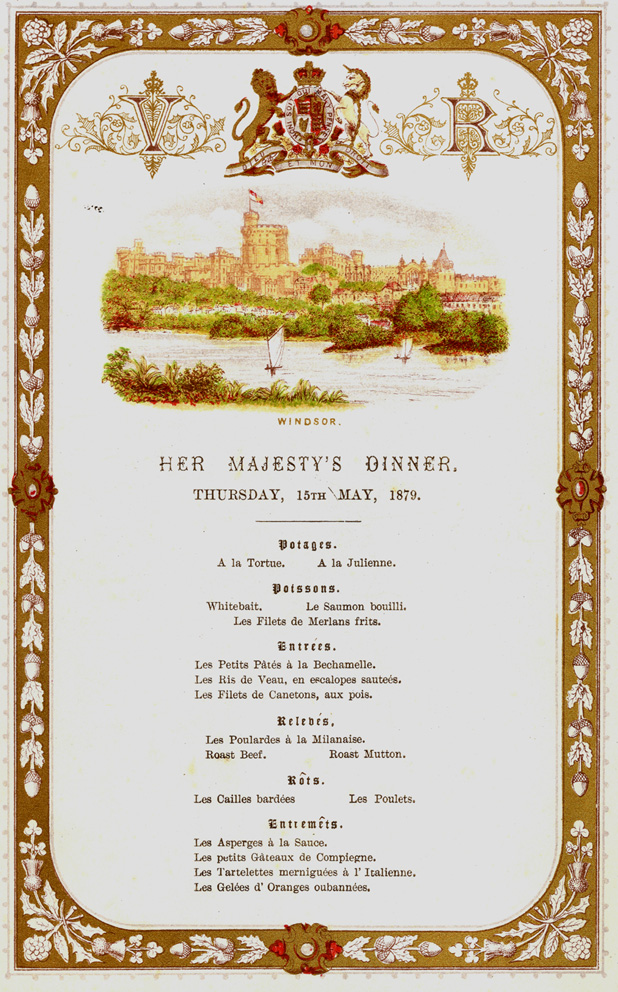 V R
WINDSOR.
HER MAJESTY'S DINNER.
THURSDAY, 15TH MAY, 1879.
Potages.
A la Tortue. A la Julienne.
Poissons.
Whitebait. Le Saumon bouilli.
Les Filets de Merlans frits.
Entrées.
Les Petits Pâtés à la Bechamelle.
Les Ris de Veau, en escalopes sauteés.
Les Filets de Canetons, aux pois.
Relevés,
Les Poulardes à la Milanaise.
Roast Beef. Roast Mutton.
Rôts.
Les Cailles bardées Les Poulets.
Entremêts.
Les Asperges à la Sauce.
Les petits Gâteaux de Compiegne.
Les Tartelettes merniguées à l' Italienne.
Les Gelées d' Oranges oubannées.